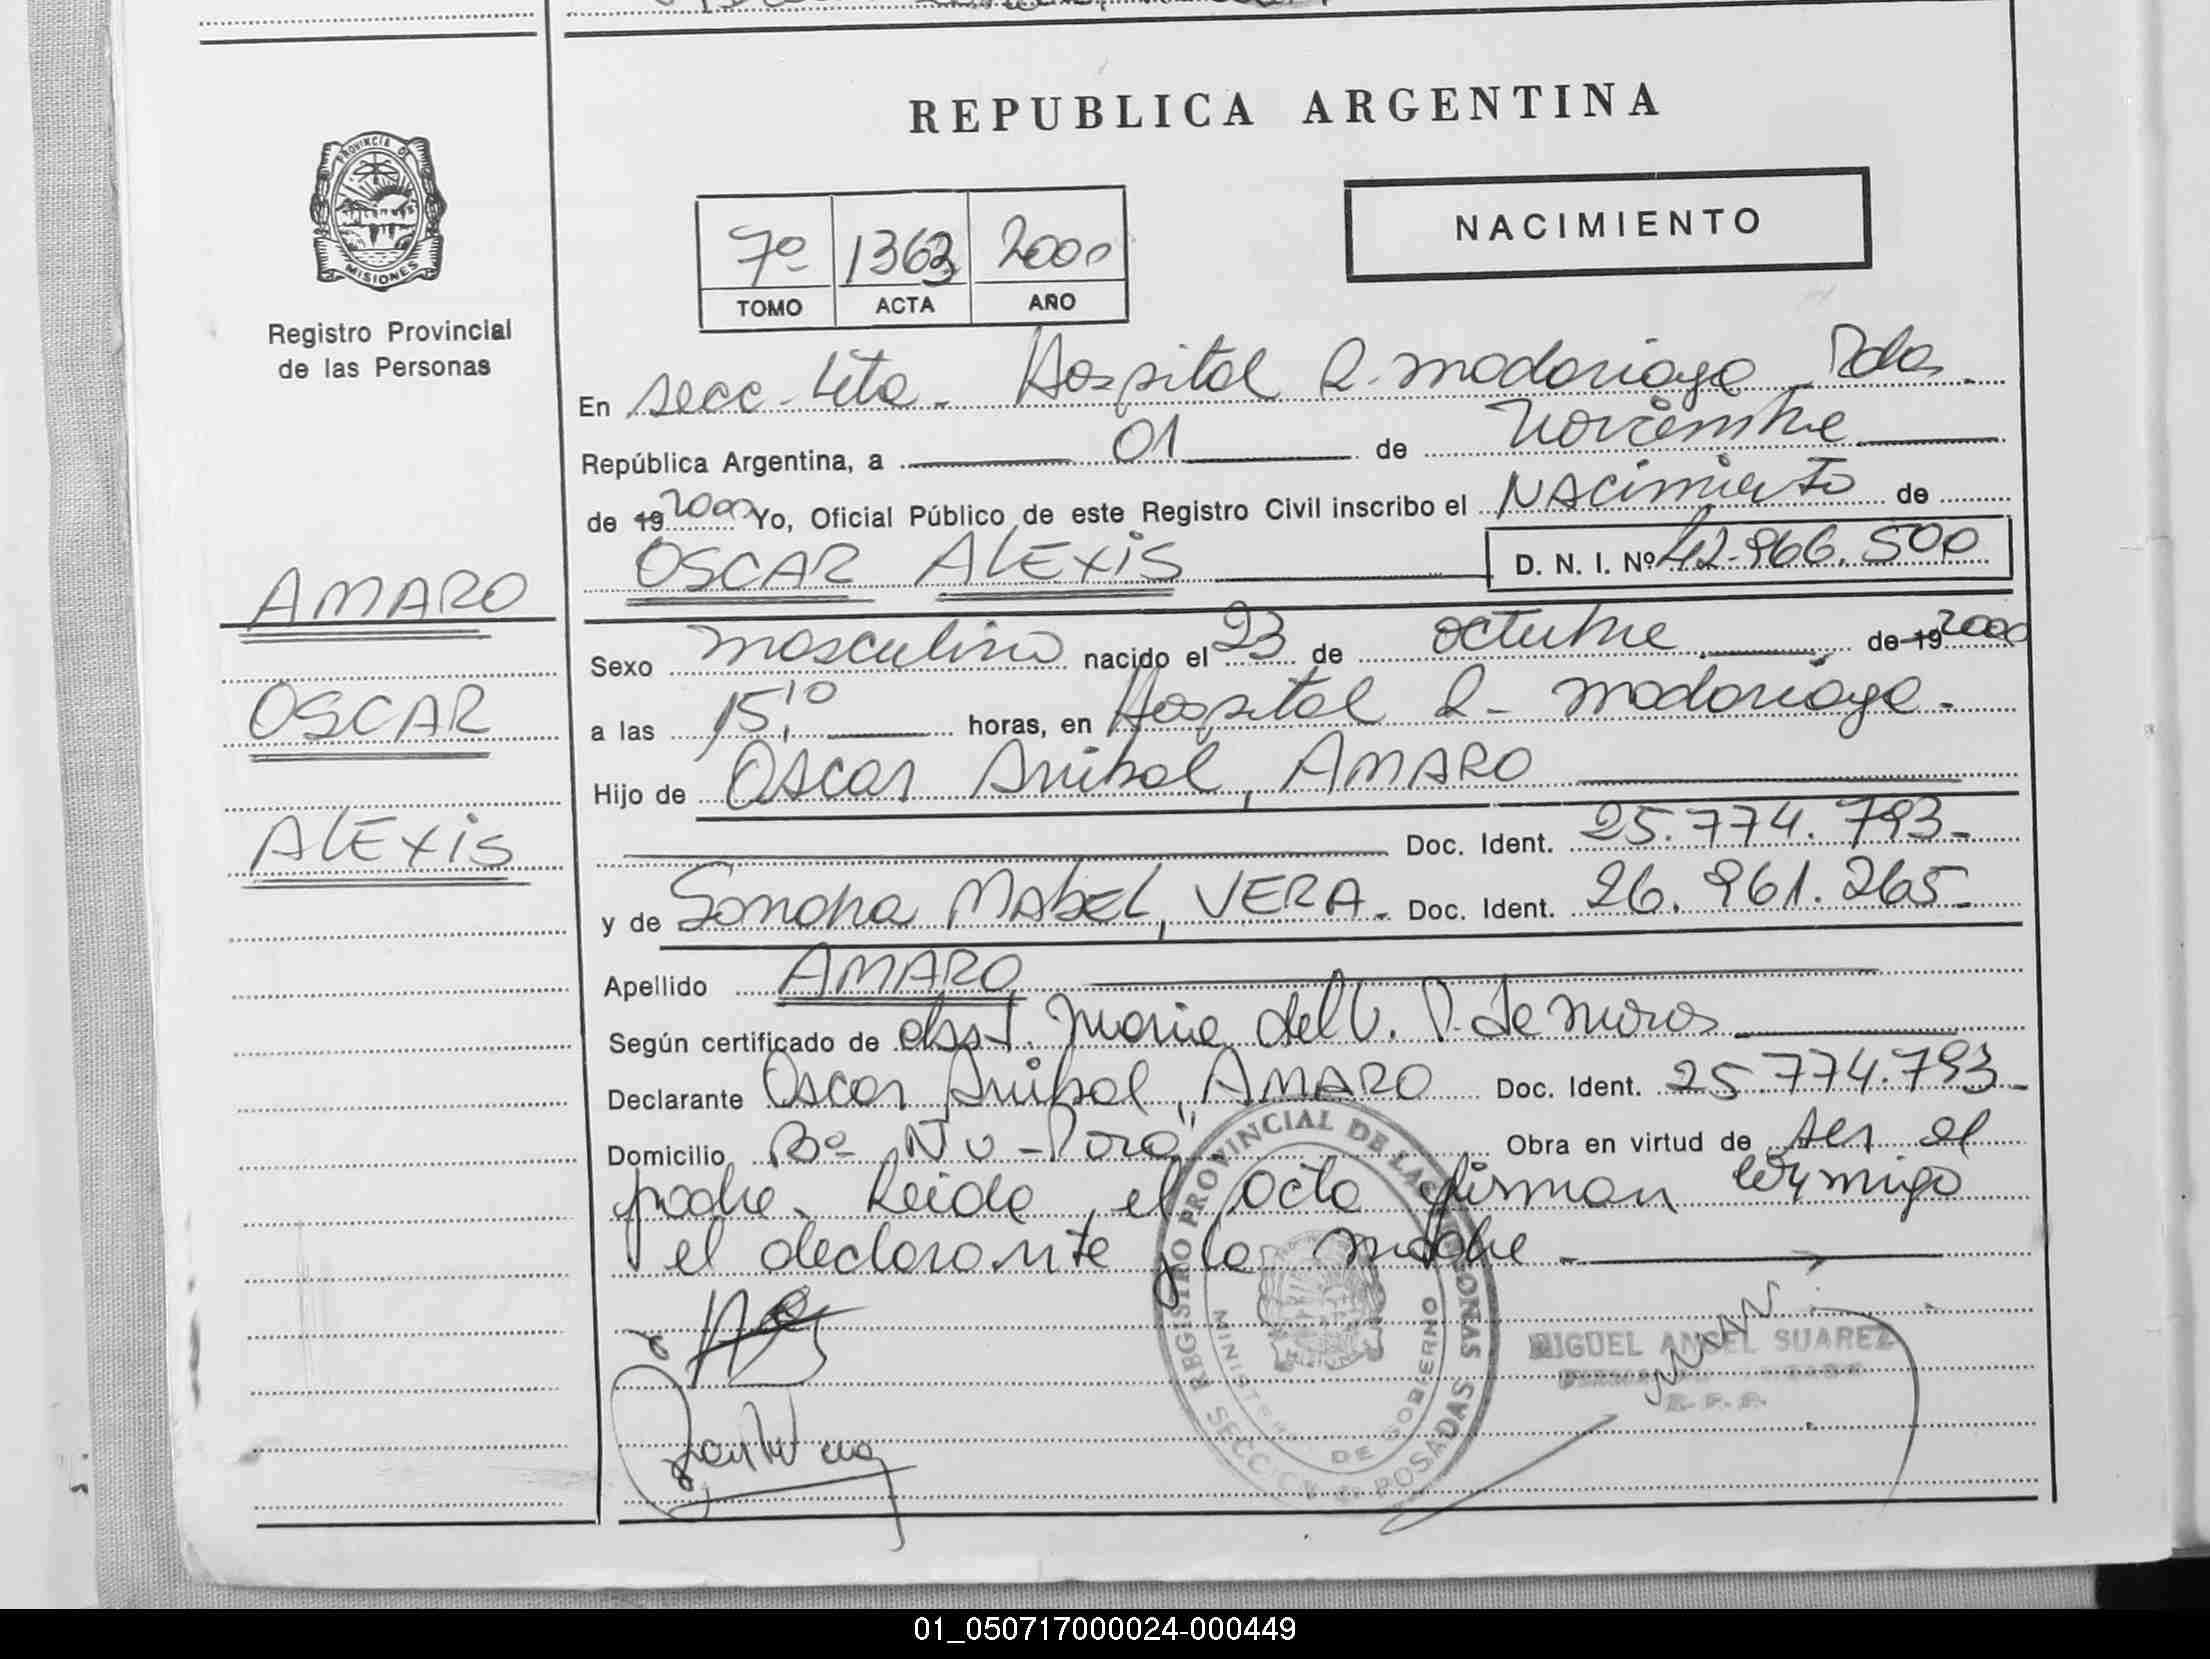 REPUBLICA ARGENTINA
PROVINCIA DE MISIONES
Registro Provincial
de las Personas
NACIMIENTO
7º 1363 2000
TOMO ACTA AÑO
En secc. 4ta. Hospital R. Madariaga Pdas.
República Argentina, a 01 de Noviembre
de 19 2000 Yo, Oficial Público de este Registro Civil inscribo el NACimiento de
OSCAR ALEXIS D. N. I. Nº 42.966.500
AMARO
OSCAR
ALEXIS
Sexo masculino nacido el 23 de octubre de 19 2000
a las 15,10 horas, en Hospital R. Madariaga.
Hijo de Oscar Anibal, AMARO
Doc. Ident. 25.774.793-
y de Sandra MABEL, VERA. Doc. Ident. 26.961.265-
Apellido AMARO
Según certificado de obst. Maria del V. P. de
Declarante Oscar Anibal, AMARO Doc. Ident. 25.774.793-
Domicilio Bº Ñu-Porá" Obra en virtud de ser el
padre. Leida el acta firman conmigo
el declarante y la madre.-
REGISTRO PROVINCIAL DE LAS PERSONAS
MINISTERIO DE GOBIERNO
SECC. 4ta POSADAS
MIGUEL ANGEL SUAREZ
R. P. P.
01_050717000024-000449